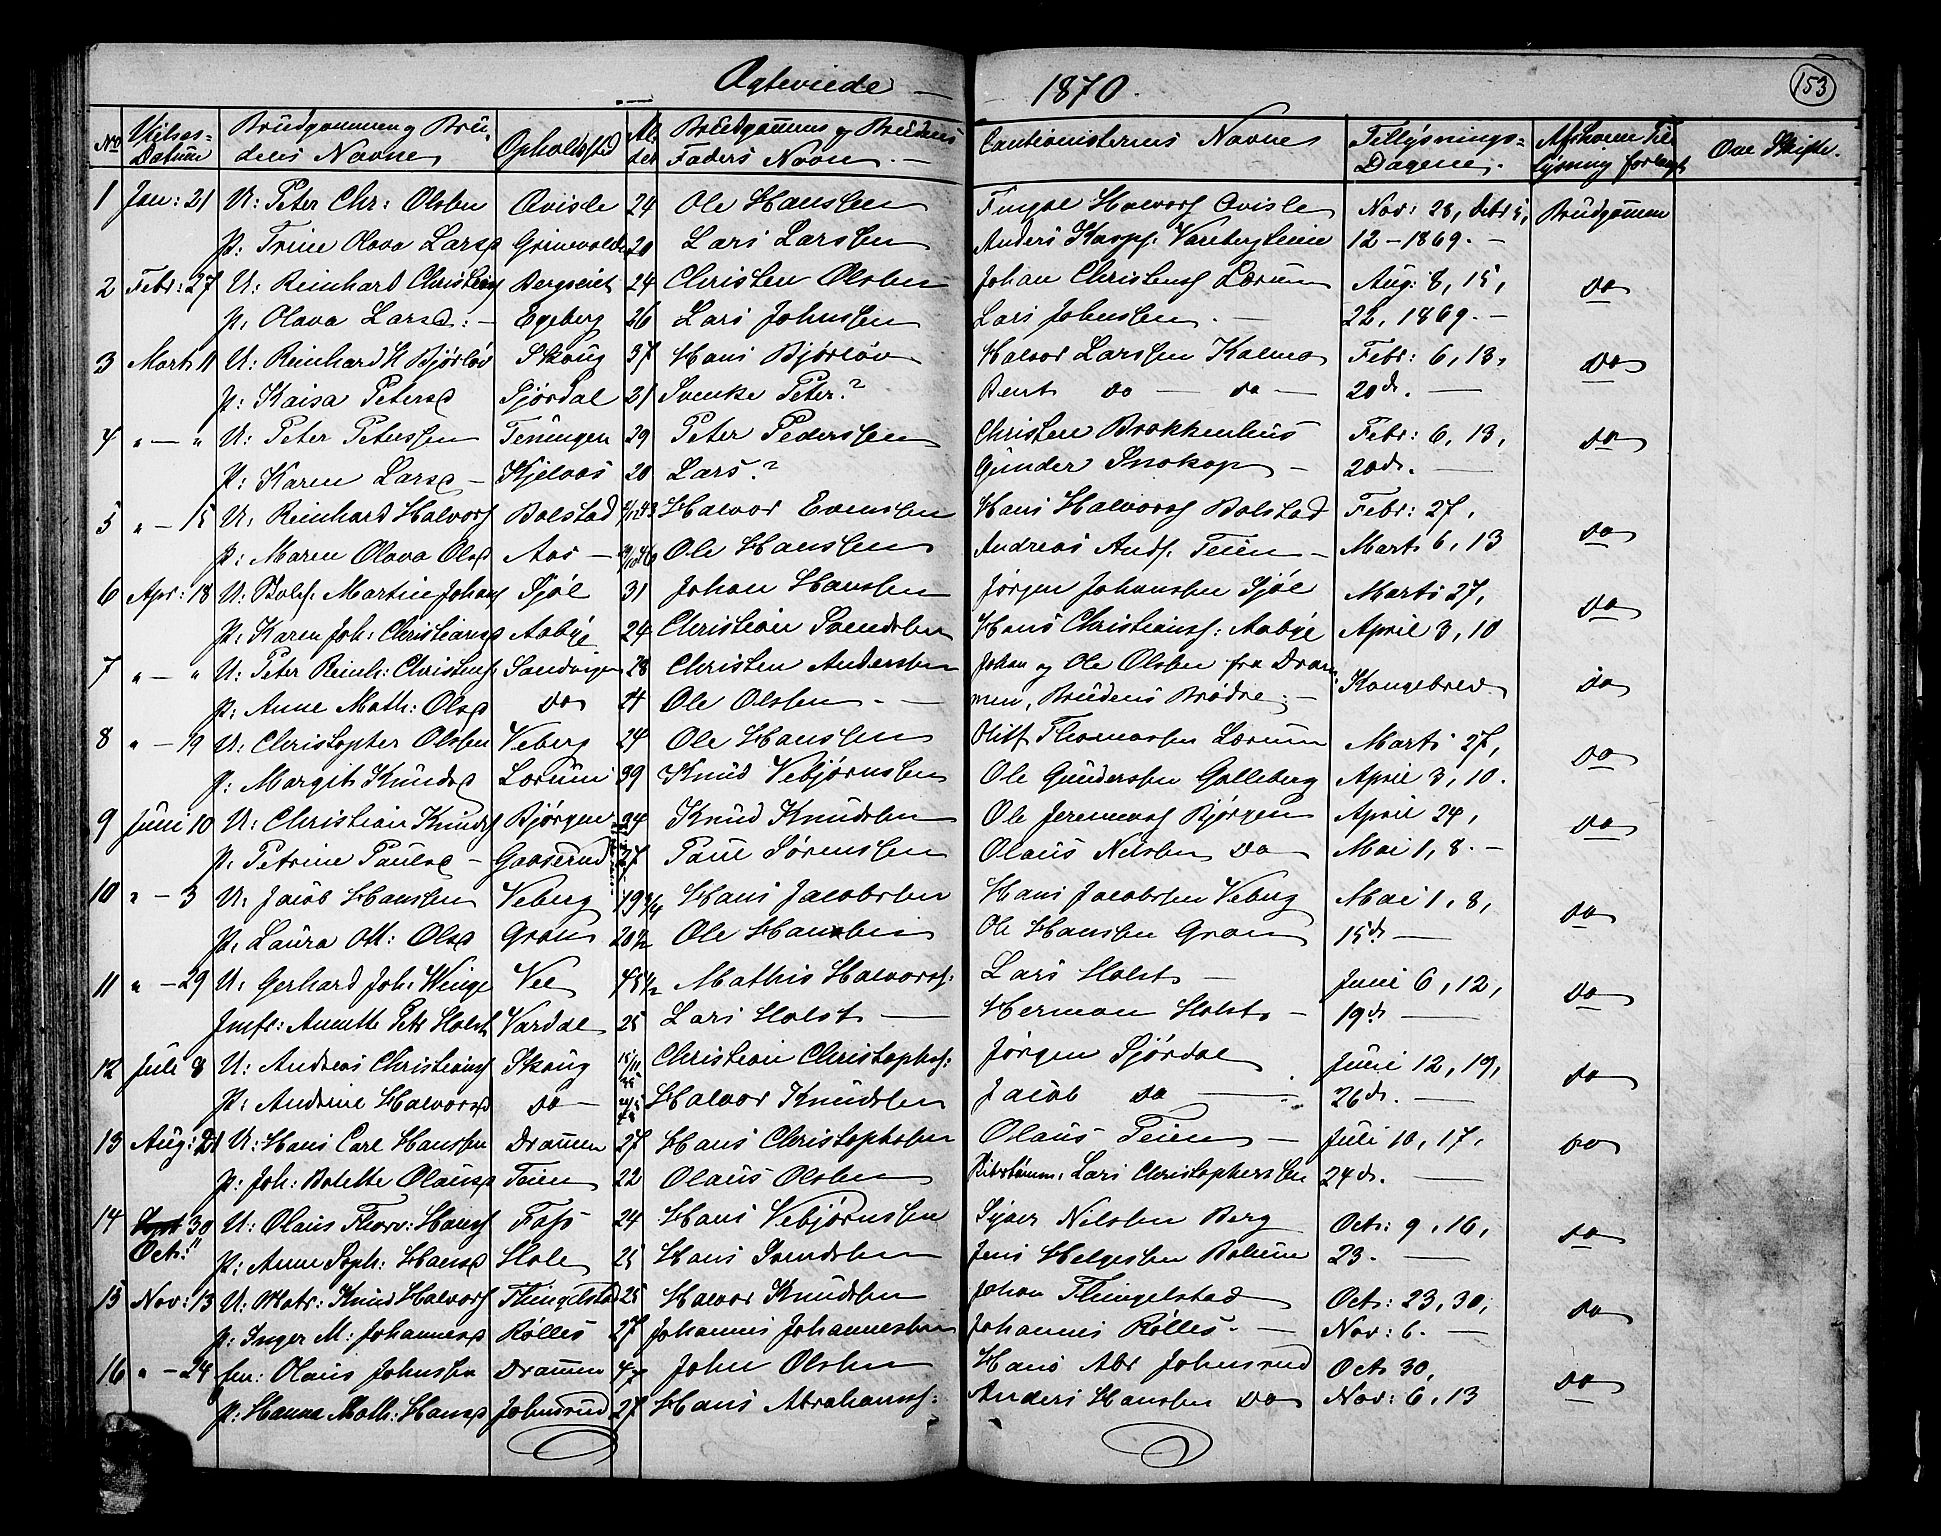 Ægteviede — 1870.
153
No | Vielses-Datum | Brudgommen og Brudens Navne | Opholdssted | Alder | Brudgommens og Brudens Faders Navn. — | Cautionisternes Navne | Tillysnings-Dagene. | Af hvem Tillysning forlangt
1 | Jan: 21 | U: Peter Chr: Olsen | Qvisle | 24 | Ole Hanssen | Halvors Qvisle | Nov: 28, | Brudgommen
P: Trine Olava Larsd | 20 | Lars Larssen | Anders | 12 – 1869. –
2 | Febr: 27 | U: Reinhard Christens | Bergseiet | 24 | Christen Olsen | Johan Christens Lorum | Aug: 8, 15, | do
P: Olava Larsd: – | Egeberg | 26 | Lars Johnssen | Lars Johnssen. – | 22, 1869. –
3 | Marts 11 | U: Reinhard H Bjørløv | Skoug | 37 | Hans Bjørløv | Halvor Larssen Kalmo | Febr: 6, 13, | do
P: Kaisa Petersd | Sjørdal | 21 | Svenke Peter? | Bent do — do — | 20de. —
4 | " — " | U: Peter Peterssen | 29 | Peter Pederssen | Christen Brokkenhus | Febr: 6, 13, | do
P: Karen Larsd – | Kjelaas | 20 | Lars? | Gunder Snokop – | 20de. —
5 | " — 15 | U: Reinhard Halvors | Bolstad | Halvor Evenssen | Hans Halvors Bolstad | Febr: 27, | do
P: Maren Olava Olsd | Aas – | Ole Hanssen | Andreas And: Teien – | Marts 6, 13
6 | Apr: 18 | U: Martin Johans | Sjøl | 31 | Johan Hanssen | Jørgen Johanssen Sjøl | Marts 27, | do
P: Karen Joh: Christiansd | Aabye | 24 | Christian Svendsen | Hans Christians: Aabye | April 3, 10
7 | " — " | U: Peter Reinh: Christens: | Sandvigen | 28 | Christen Anderssen | Johan og Ole Olsen fra Dram- | Kongebrev | do
P: Anne Math: Olsd | do | 24 | Ole Olssen. – | men, Brudens Brødre. –
8 | " — 19 | U: Christopher Olssen | Veberg | 24 | Ole Hanssen | Thomassen Lorum | Marts 27, | do
P: Margit Knudsd | Lorum | 39 | Knud Vebjørnssen | Ole Gunderssen Galleberg | April 3, 10.
9 | Juni 10 | U: Christian Knuds | Bjørgen | 24 | Knud Knudssen | Ole Jeremias Bjørgen | April 24, | do
P: Petrine Paulsd – | Gaaserud | 27 | Paul Sørenssen | Olaus Nilssen do | Mai 1, 8. –
10 | " — 3 | U: Jacob Hanssen | Veberg | 19 3/4 | Hans Jacobsen | Hans Jacobsen Veberg | Mai 1, 8, | do
P: Laura Ott: Olsd | Gran | 20 1/2 | Ole Hanssen | Ole Hanssen Gran | 15de —
11 | " — 29 | U: Gerhard Joh: Winge | Vee | 45 1/2 | Mathis Halvors: | Lars Holst – | Juni 6, 12, | do
Jmfr: Annette Petr Holst | Vardal | 25 | Lars Holst — | Herman Holst – | 19de —
12 | Juli 8 | U: Andreas Christians | Skoug | Christian Christophs: | Jørgen Sjørdal | Juni 12, 19, | do
P: Andrine Halvorsd | do — | Halvor Knudssen | Jacob do — | 26de. —
13 | Aug: 21 | U: Hans Carl Hanssen | Drammen | 27 | Hans Christophsen | Olaus Teien – | Juli 10, 17, | do
P: Joh: Bolette Olausd | Teien | 22 | Olaus Olsen | Lars Christopherssen | 24de. —
14 | Sept 30 Oct: " | U: Olaus Thorv: Hans | Foss | 24 | Hans Vebjørnssen | Syver Nilssen Berg | Oct: 9, 16, | do
P: Anne Soph: Hansd | Hole | 25 | Hans Svendsen | Jens Helgessen | 23. —
15 | Nov: 13 | U: Matr: Knud Halvors | Thingelstad | 25 | Halvor Knudssen | Johan Thingelstad | Oct: 23, 30, | do
P: Inger M: Johannesd | Rølles | 27 | Johannes Johannessen | Johannes Rølles. – | Nov: 6. —
16 | " — 24 | Em: Olaus Johnssen | Drammen | 47 | John Olsen | Hans Abr Johnsrud | Oct 30, | do
P: Hanna Math: Hansd | Johnsrud | 27 | Hans Abrahams: | Anders Hanssen do | Nov: 6, 13